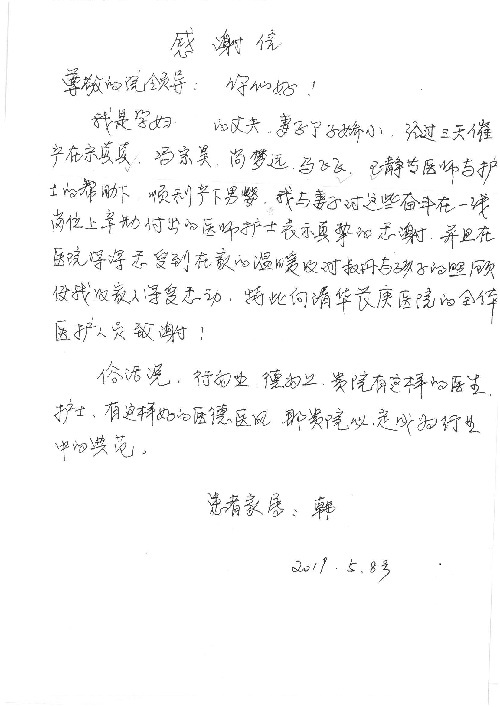 感谢信
尊敬的院领导：你们好！
我是孕妇 的丈夫，妻子 娇小，经过三天催
产在宗真真，冯宗昊，尚梦远，马飞飞，王静等医师与护
士的帮助下 顺利产下男婴，我与妻子对这些奋斗在一线
岗位上辛勤付出的医师护士表示真挚的感谢，并且在
医院深深感受到在家的温暖及对 孩子的照顾
使我及家人深受感动，特此向清华长庚医院的全体
医护人员致谢！
俗话说，行为业，德为 ，贵院有这样的医生
护士，有这样好的医德医风，那贵院必定成为行业
中的典范。
患者家属：韩
2019.5.8号